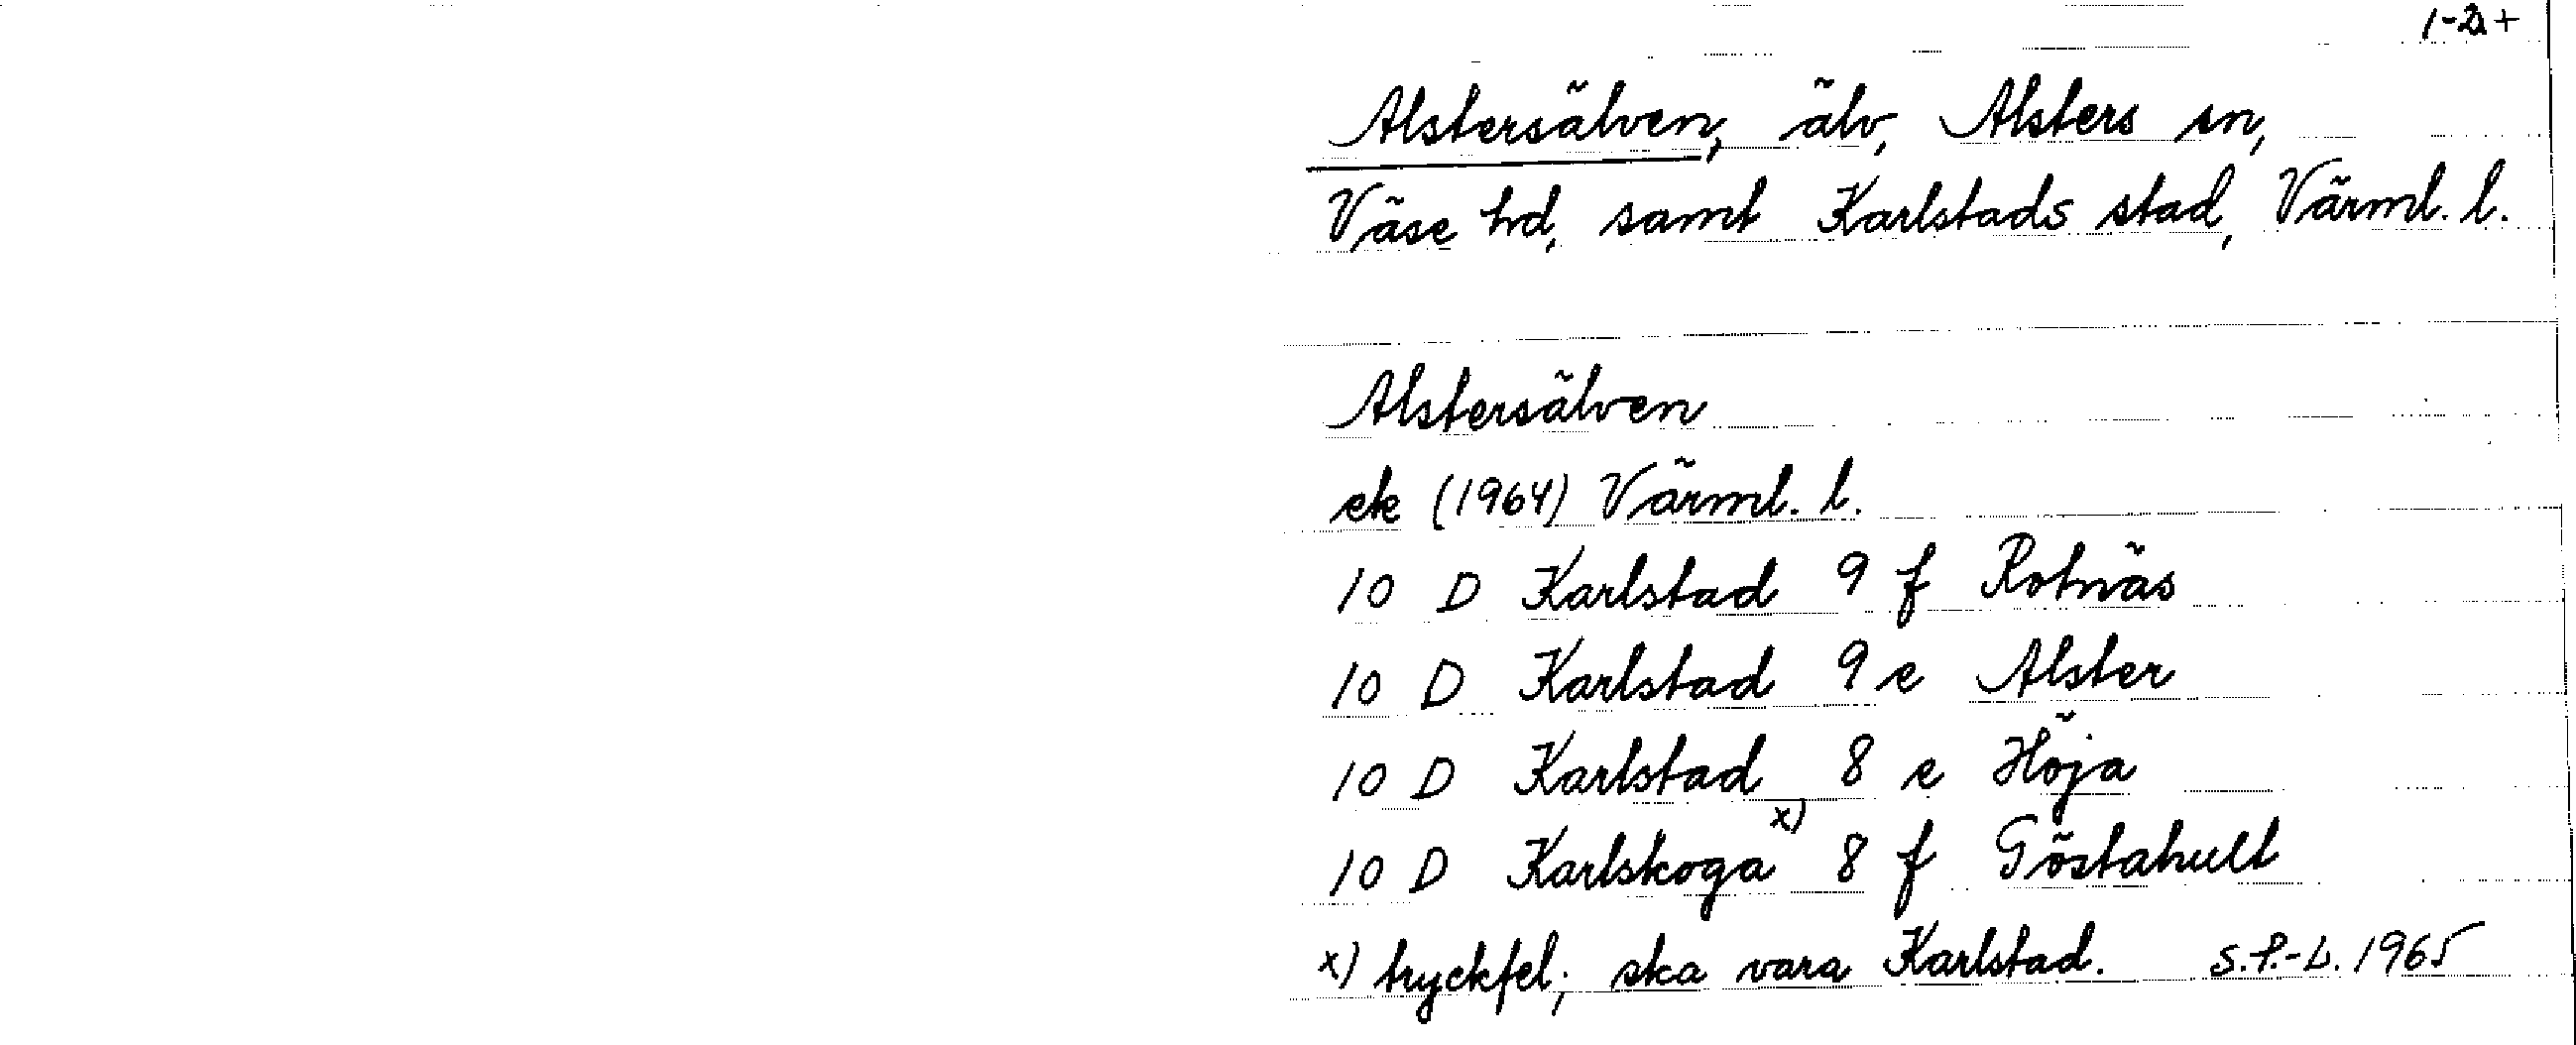 1-2+
Alstersälven, älv, Alsters sn,
Väse hd, samt Karlstads stad, Värml. l.
Alstersälven
ek (1964) Värml. l.
10 D Karlstad 9 f Rotnäs
10 D Karlstad 9 e Alster
10 D Karlstad 8 e Höja
10 D Karlskoga x) 8 f Göstahult
x) tryckfel; ska vara Karlstad. S.P.-L. 1965